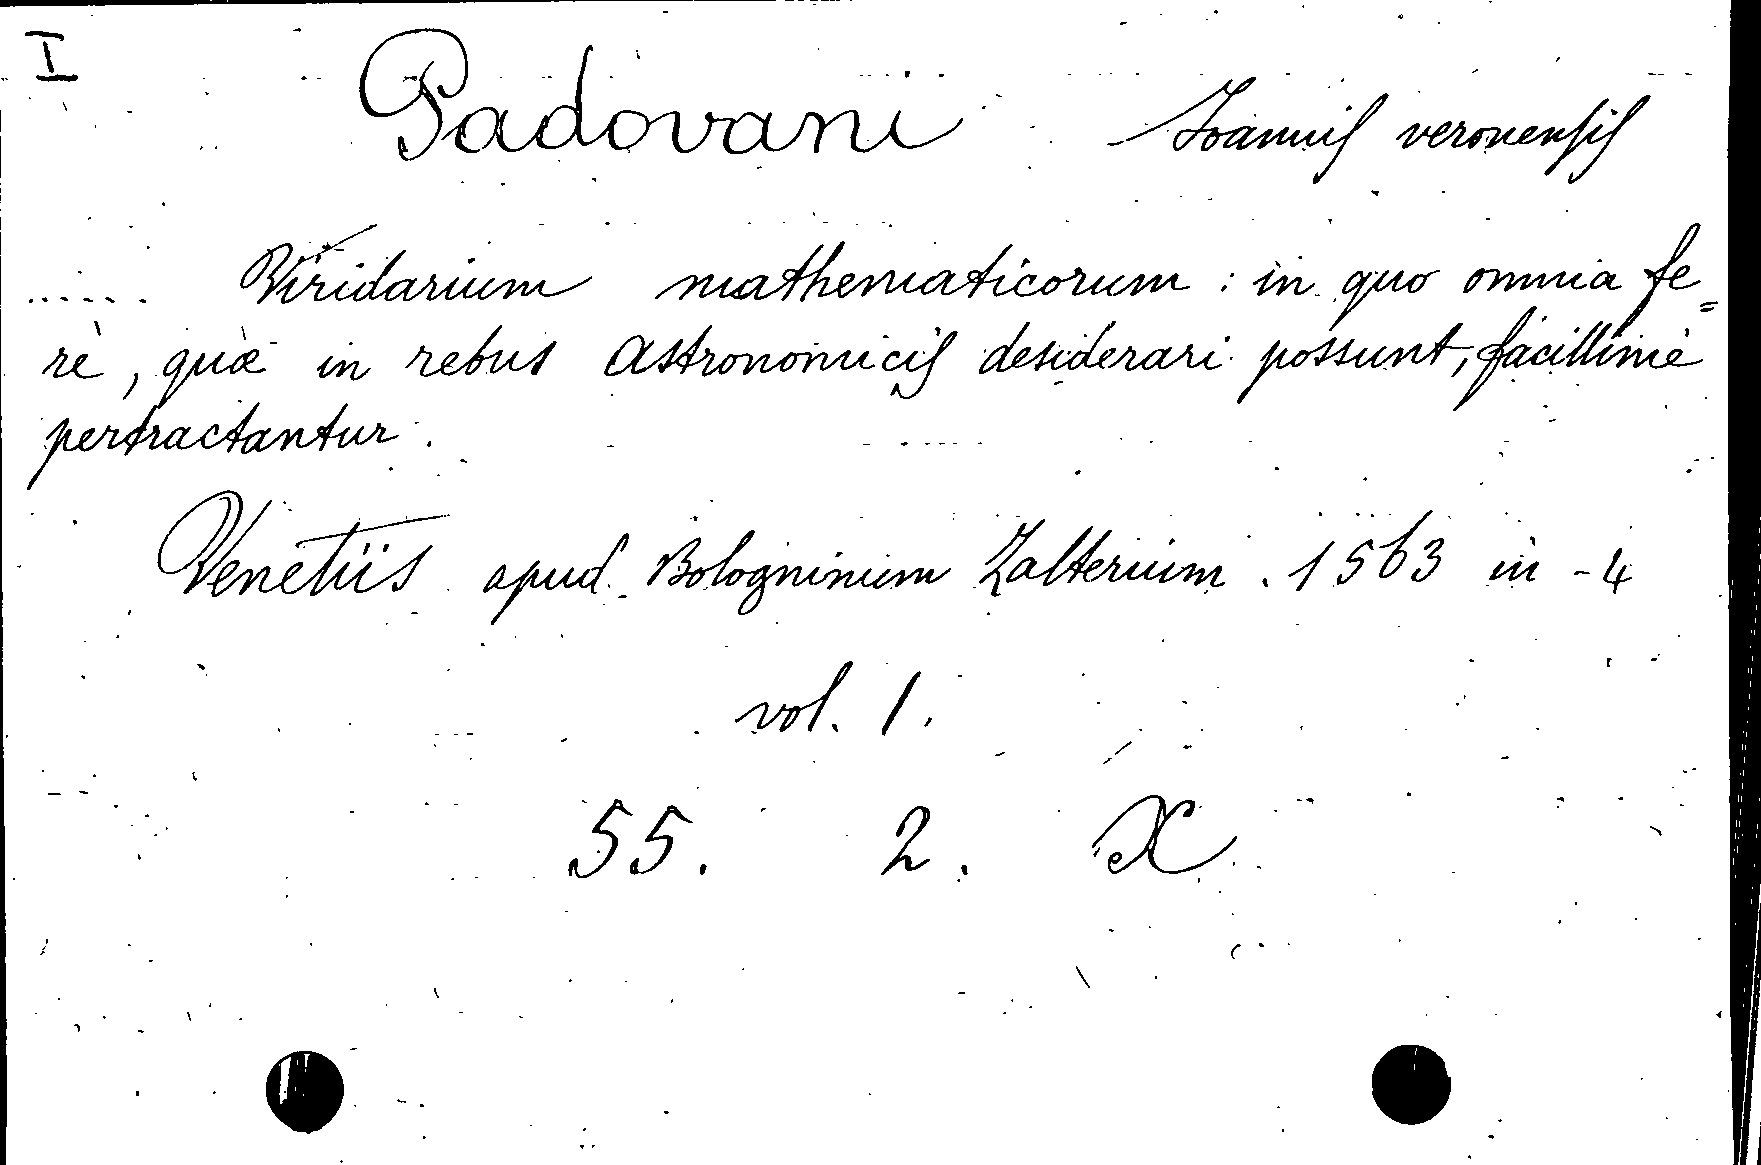 I
Padovani Ioannis veronensis
Viridarium mathematicorum : in quo omnia fe=
rè, quæ in rebus astronomicis desiderari possunt, facillimè
pertractantur.
Venetiis apud Bologninum Zalterium . 1563 in-4
vol. 1.
55. 2. X